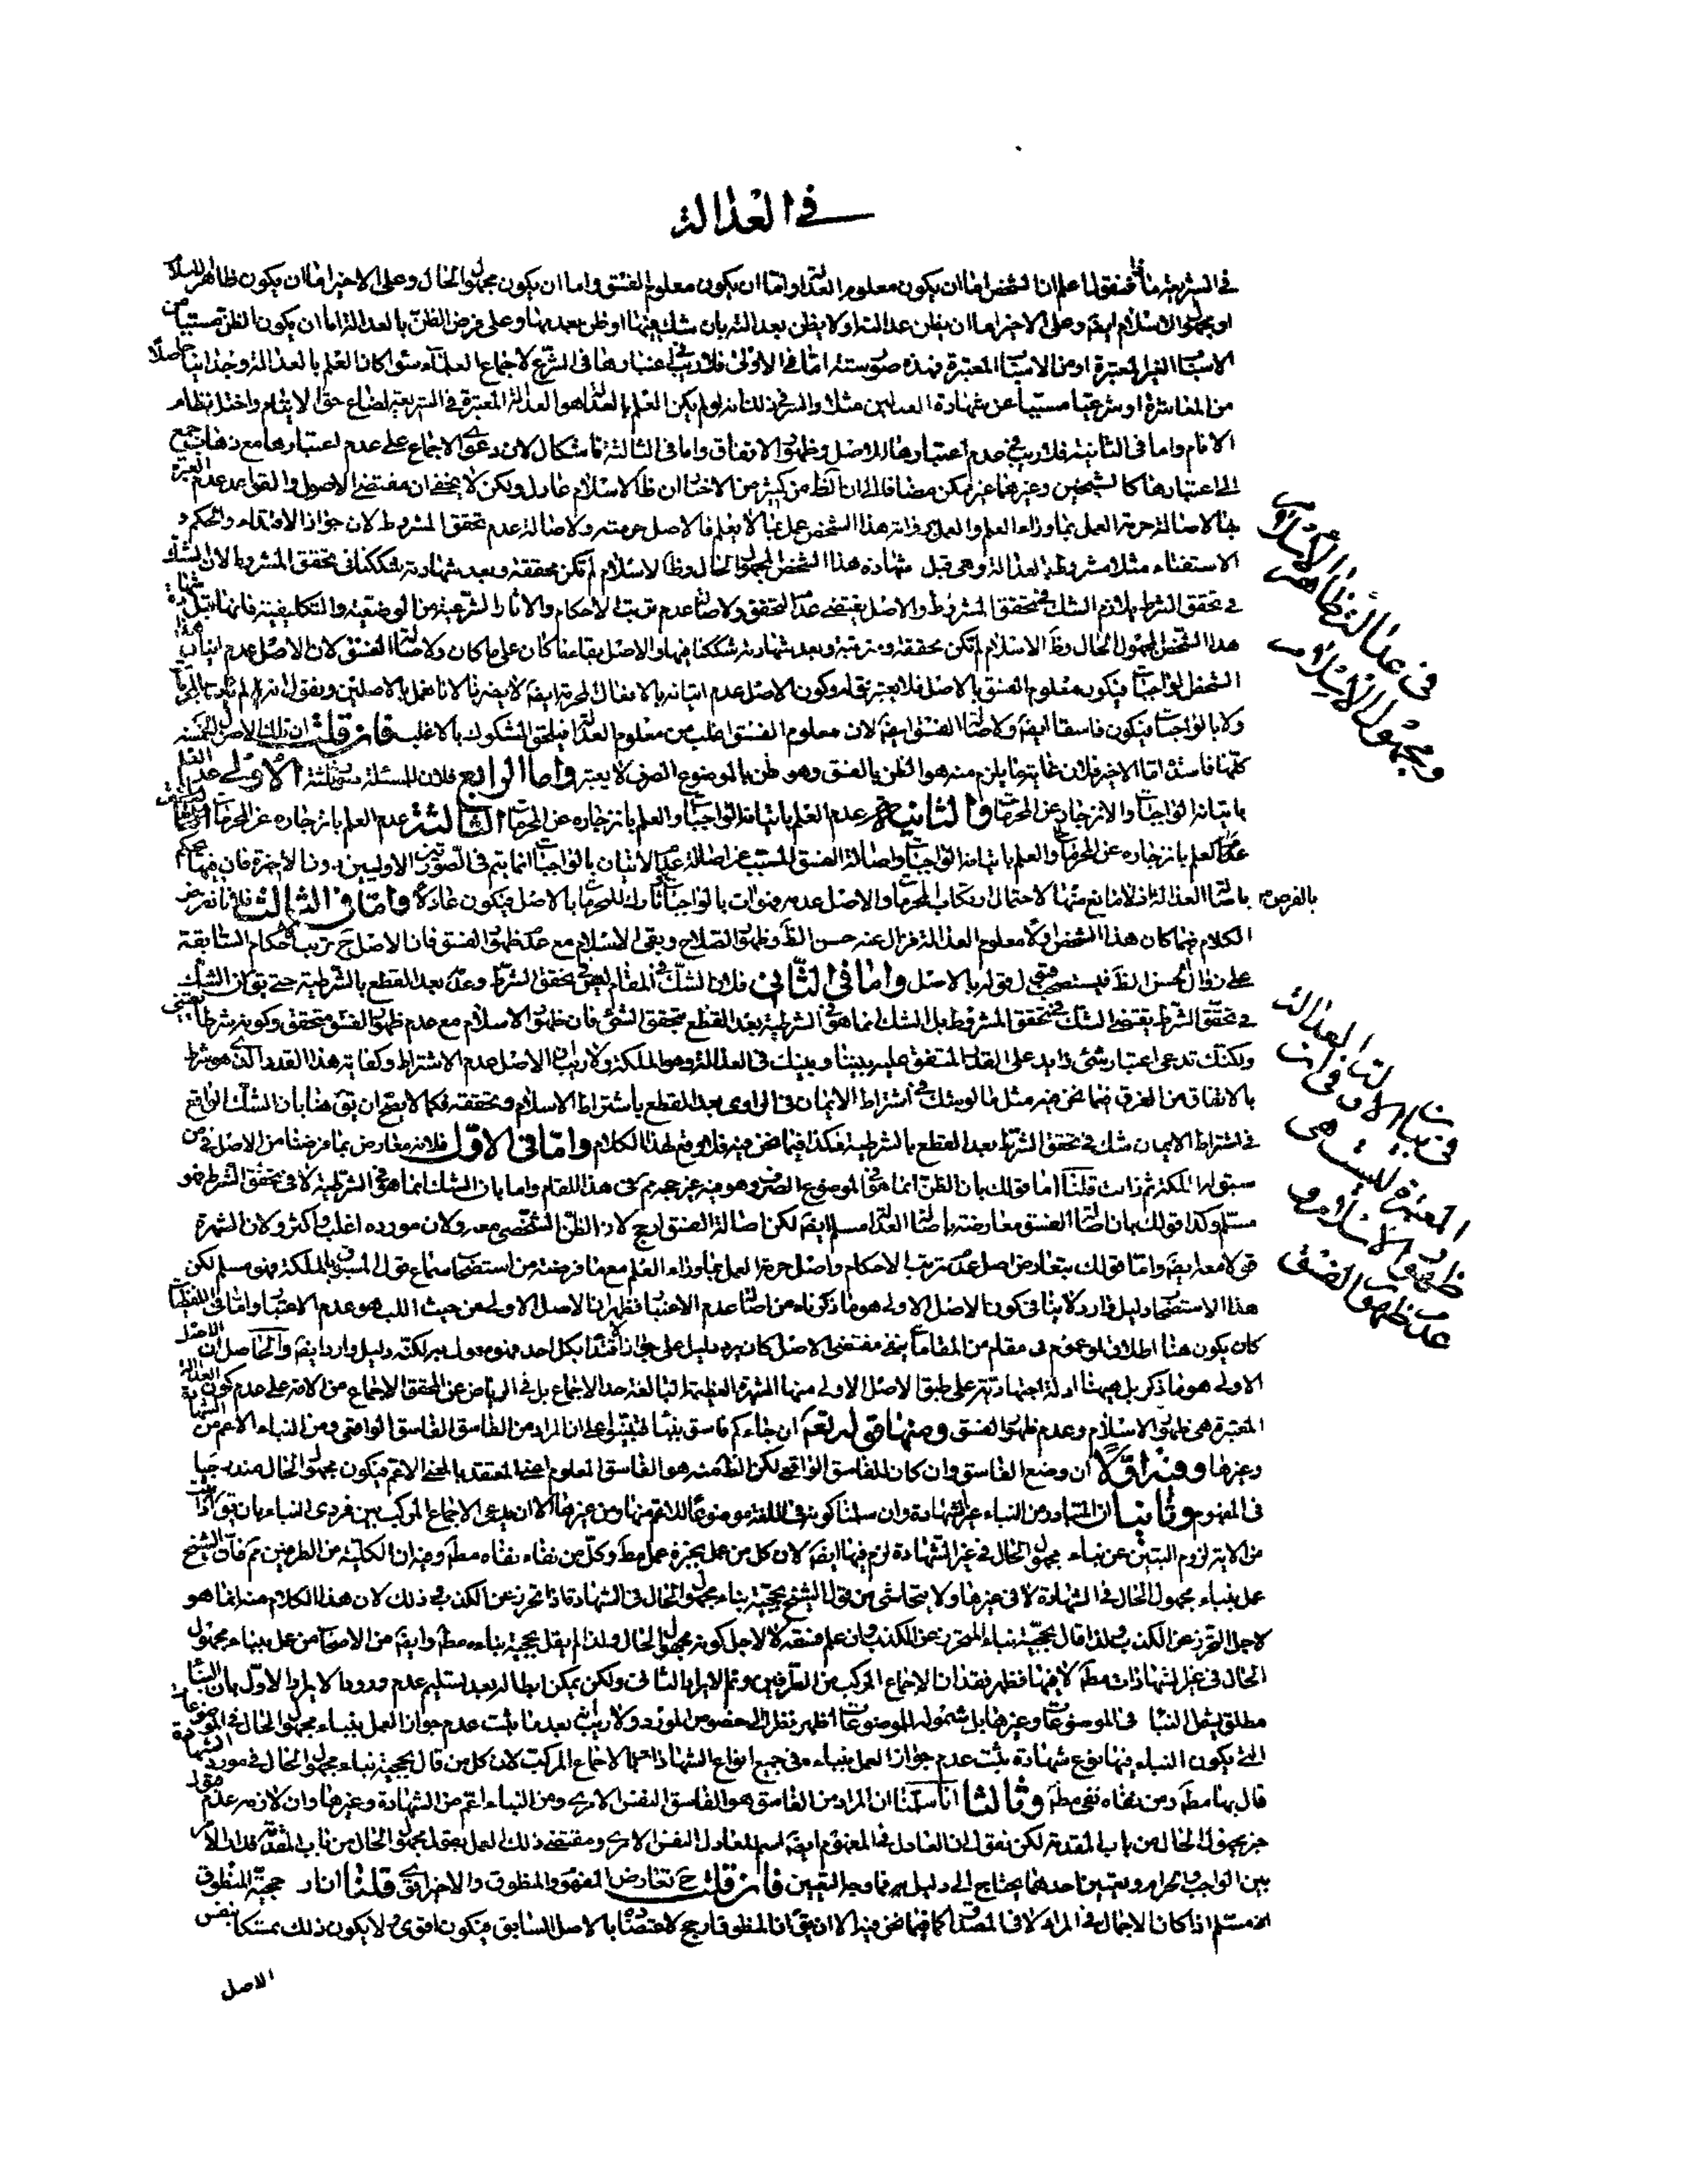 في العدالة
في الشريعة فنقول اعلم ان الشخص اما ان يكون معلوم العدالة واما ان يكون معلوم الفسق واما ان يكون مجهول الحال وعلى الاخير اما ان يكون ظاهر الاسلام
او مجهول الاسلام ايضا وعلى الاخير اما ان يظن عدالته او لا يظن بعدالته بان شك فيها او ظن بعدمها وعلى فرض الظن بالعدالة اما ان يكون الظن مستببا من
الاسباب الغير المعتبرة او من الاسباب المعتبرة فهذه صور ستة اما في الاولى فلا ريب في اعتبارها في الشرع لاجماع العلماء سواء كان العلم بالعدالة وجدانيا حاصلا
من المعاشرة او شرعيا مسببا عن شهادة العدلين مثلا والسر في ذلك انه لو لم يكن العلم بالعدالة هو العدالة المعتبرة في الشريعة لضاع حق الايتام واختل نظام
الانام واما في الثانية فلا ريب في عدم اعتبارها للاصل وظهور الاتفاق واما في الثالثة فاشكال لان دعوى الاجماع على عدم اعتبارها مع ذهاب جمع
الى اعتبارها كالشيخين وغيرهما غير ممكن مضافا الى ان الظ من كثير من الاخبار ان ظ الاسلام عادل ولكن لا يخفى ان مقتضى الاصول والقواعد عدم العبرة
بها لاصالة حرمة العمل بما وراء العلم والعمل هذا الشخص عمل بما لا يعلم فالاصل حرمته ولاصالة عدم تحقق المشروط لان جواز الاقتداء والحكم و
الاستفتاء مثلا مشروط بالعدالة وهي قبل شهادة هذا الشخص المجهول الحال وظ الاسلام لم تكن محققة وبعد شهادته شككنا في تحقق المشروط لان الشك
في تحقق الشرط يلازم الشك في تحقق المشروط والاصل يقتضي عدم التحقق ولاصالة عدم ترتب الاحكام والاثار الشرعية من الوضعية والتكليفية فانها قبل شهادة
هذا الشخص المجهول الحال وظ الاسلام لم تكن محققة ومترتبة وبعد شهادته شككنا فيها والاصل بقاء ما كان على ما كان ولاصالة الفسق لان الاصل عدم اتيان هذا
الشخص الواجبات فيكون معلوم الفسق بالاصل فلا يعتبر قوله وكون الاصل عدم اتيانه بالافعال المحرمة ايضا لا يضرنا لانا نعمل بالاصلين ونقول انه لم يات بالمحرمات
ولا بالواجبات فيكون فاسقا ايضا ولاصالة الفسق ايضا لان معلوم الفسق اغلب من معلوم العدالة فيلحق المشكوك بالاغلب فان قلت ان تلك الاصول الخمسة
كلها فاسدة اما الاخير فلان غاية ما يلزم منه هو الظن بالفسق وهو ظن بالموضوع الصرف لا يعتبر واما الرابع فلان المسئلة مثلثة الاولى عدم العلم
باتيانه الواجبات والانزجار عن المحرمات والثانية عدم العلم باتيانه الواجبات والعلم بانزجاره عن المحرمات الثالثة عدم العلم بانزجاره عن المحرمات
عدم العلم بانزجاره عن المحرمات والعلم باتيانه الواجبات واصالة الفسق المسبب عن اصالة عدم الاتيان بالواجبات انما يتم في الصورتين الاوليين دون الاخيرة فان فيها يحكم
باصالة العدالة اذ لا مانع منها الا احتمال ارتكاب المحرمات والاصل عدمه فهو ات بالواجبات بالفرض تارك للمحرمات بالاصل فيكون عادلا واما في الثالث فلانا نفرض
الكلام فيما كان هذا الشخص اولا معلوم العدالة فزال عنه حسن الظ وظهور الصلاح وبقي الاسلام مع عدم ظهور الفسق فان الاصل ح ترتب الاحكام السابقة
على زوال حسن الظ فيستصحب فيحكم بقبول قوله بالاصل واما في الثاني فلان الشك في المقام ليس في تحقق الشرط وعدمه بعد القطع بالشرطية حتى يق ان الشك
في تحقق الشرط يقتضي الشك في تحقق المشروط بل الشك انما هو في الشرطية بعد القطع بتحقق الشيء فان ظهور الاسلام مع عدم ظهور الفسق متحقق وكونه شرطا يقيني
ولكنك تدعي اعتبار شيء زايد على القدر المتفق عليه بيننا وبينك في العدالة وهو الملكة ولا ريب ان الاصل عدم الاشتراط وكفاية هذا القدر الذي هو شرط
بالاتفاق من الفرق فما نحن فيه مثل ما لو شك في اشتراط الايمان في الراوي بعد القطع باشتراط الاسلام وتحققه فكما لا يصح ان يق هنا بان الشك الواقع
في اشتراط الايمان شك في تحقق الشرط بعد القطع بالشرطية فكذا فيما نحن فيه فلا وقع لهذا الكلام واما في الاول فلانه معارض بما فرضنا من الاصل في من
سبق له الملكة ثم زالت قلنا اما قولك بان الظن انما هو في الموضوع الصرف وهو فيه غير حجة في هذا المقام واما بان الشك انما هو في الشرطية لا في تحقق الشرط فهو
مسلم وكذا قولك بان اصالة الفسق معارضة باصالة العدالة مسلم ايضا لكن اصالة الفسق ارجح لان الظن الشخصي معه ولان مورده اغلب واكثر ولان الشهرة
هي لا معه ايضا واما قولك بتعارض اصل عدم ترتب الاحكام واصل حرمة العمل بما وراء العلم مع ما فرضته من استصحاب سماع قول المسبوق بالملكة فهو مسلم لكن
هذا الاستصحاب دليل وارد لا ينافي كون الاصل الاولي هو ما ذكرناه من اصالة عدم الاعتبار فظهر ان الاصل الاولي من حيث اللب هو عدم الاعتبار واما في اللفظيات
كان يكون هنا اطلاق او عموم في مقام من المقامات ينفي مقتضى الاصل كان يرد دليل على جواز الاقتداء بكل احد فهو معول به لكنه دليل وارد ايضا والحاصل ان الاصل
الاولي هو ما ذكر بل هيهنا ادلة اجتهادية على طبق الاصل الاولي منها الشهرة العظيمة البالغة حد الاجماع بل في الرياض عن المحقق الاجماع من الامة على عدم كون العدالة
المعتبرة هي ظهور الاسلام وعدم ظهور الفسق ومنها قوله تعم ان جاءكم فاسق بنبا فتبينوا على ان المراد من الفاسق الفاسق الواقعي ومن النباء الاعم من الشهادة
وغيرها وفيه اولا ان وضع الفاسق وان كان للفاسق الواقعي لكن الظ منه هو الفاسق المعلوم اعني المعتقد بالمعنى الاعم فيكون مجهول الحال مندرجا
في المفهوم وثانيا ان المتبادر من النباء غير الشهادة وان سلمنا كونه في اللغة موضوعا للاعم منها ومن غيرها الا ان يدعى الاجماع المركب بين فردي النباء بان يق اذا ثبت
من الاية لزوم التبين عن نباء مجهول الحال في غير الشهادة لزم فيها ايضا لان كل من عمل بخبره عمل مط وكل من نفاه نفاه مط وفيه ان الكلية من الطرفين مم فان الشيخ
عمل بنباء مجهول الحال في الشهادة لا في غيرها ولا يتحاشى من قول الشيخ بحجية نباء مجهول الحال في الشهادة اذا تحرز عن الكذب في ذلك لان هذا الكلام منه انما هو
لاجل التحرز عن الكذب ولذا قال بحجية نباء المتحرز عن الكذب وان علم فسقه لا لاجل كونه مجهول الحال ولذا لم يقل بحجية نباءه مط وايضا من الاصحاب من عمل بنباء مجهول
الحال في غير الشهادات مط لا فيها فظهر فقدان الاجماع المركب من الطرفين وتم الايراد الثاني ولكن يمكن ابطاله بعد تسليم عدم ورود الايراد الاول بان النباء
مطلق يشمل النبا في الموضوعات وغيرها بل شموله للموضوعات اظهر نظرا الى خصوص المورد ولا ريب ان بعد ما ثبت عدم جواز العمل بنباء مجهول الحال في الموضوعات
التي يكون النباء فيها نوع شهادة ثبت عدم جواز العمل بنباءه في جميع انواع الشهادات بالاجماع المركب لان كل من قال بحجية نباء مجهول الحال في مورد الشهادة
قال بها مط ومن نفاه نفى مط وثالثا انا سلمنا ان المراد من الفاسق هو الفاسق النفس الامري ومن النباء اعم من الشهادة وغيرها وان لازمه عدم قبول
خبر مجهول الحال من باب المقدمة لكن نقول ان العادل في المفهوم ايضا اسم للعادل النفس الامري ومقتضى ذلك العمل بقول مجهول الحال من باب المقدمة فدار الامر
بين الواجب والحرام وتعيين احدهما يحتاج الى دليل فما وجه التعيين فان قلت ح تعارض المفهوم والمنطوق والاخير اقوى قلنا ان ار حجية المنطوق
مسلم اذا كان الاجمال في المراد لا في المصداق كما فيما نحن فيه الا ان يق ان المنطوق ارجح لاعتضاده بالاصل السابق فيكون اقوى ولا يكون ذلك تمسكا بنفس
الاصل
في عدالة الظاهر الاسلام
ومجهول الاسلام
في بيان الاقوال في ان العدالة
المعتبرة ليست هي
ظهور الاسلام و
عدم ظهور الفسق